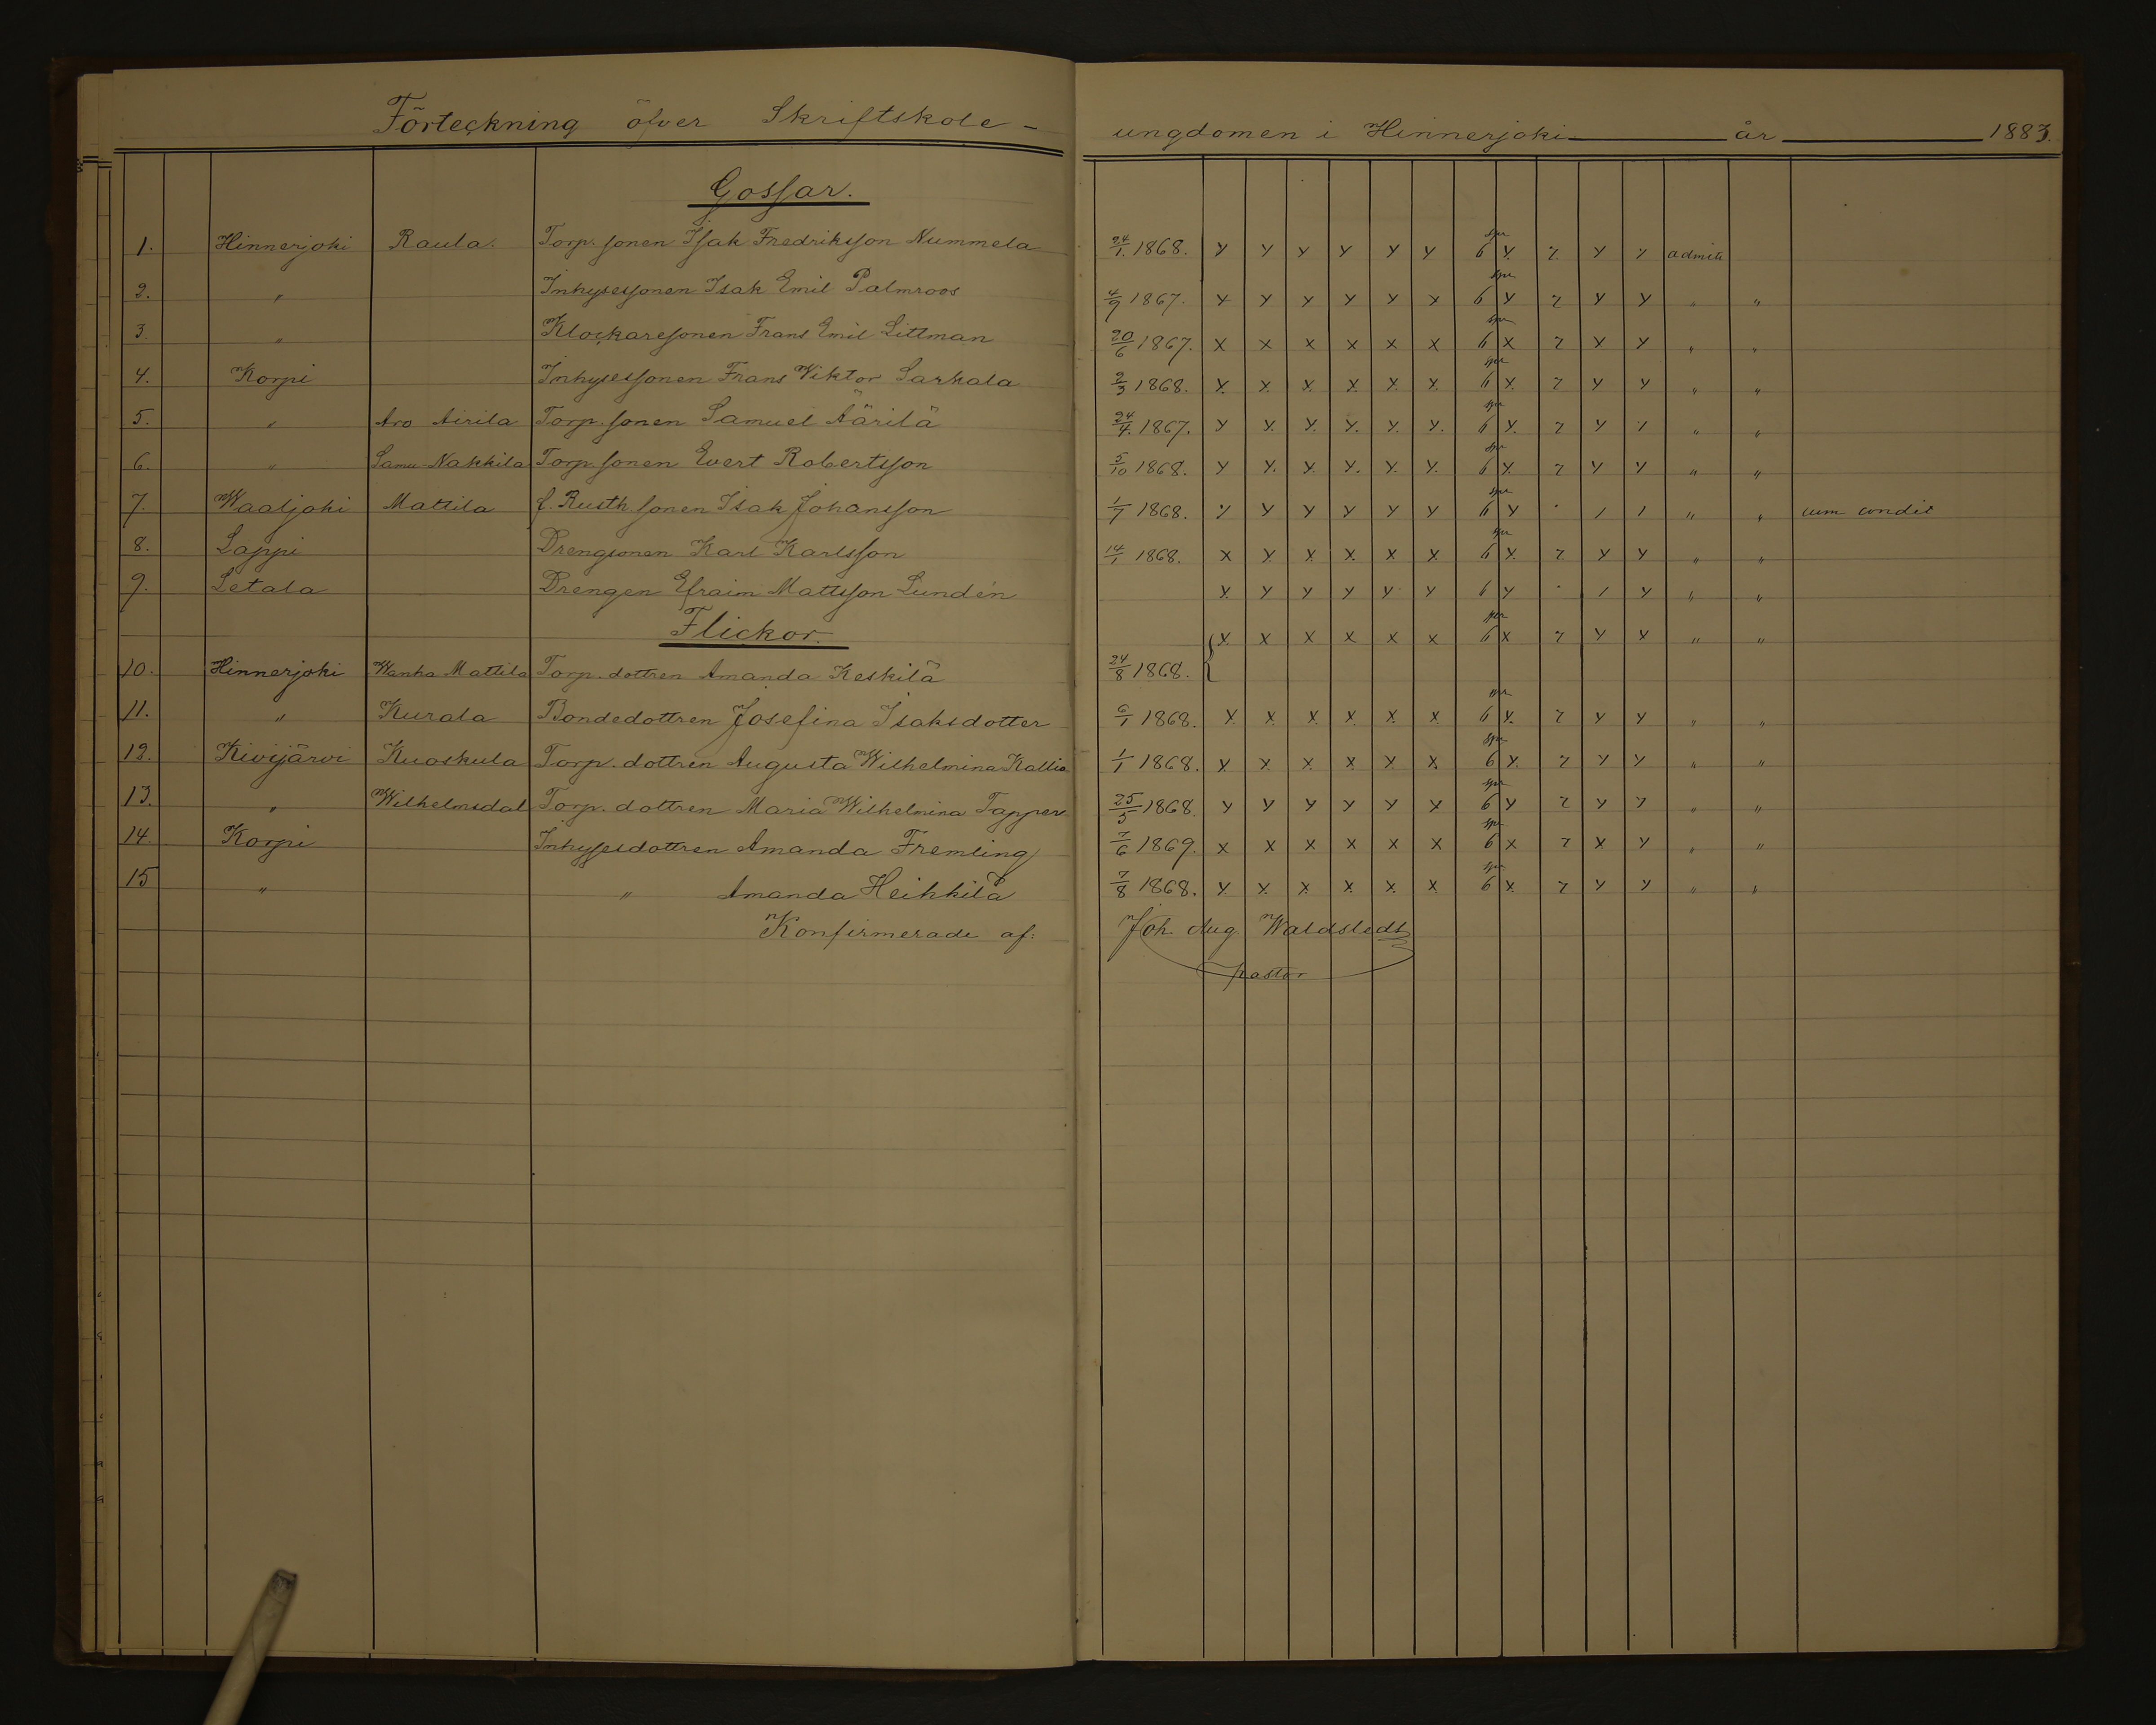 Förteckning öfver Skriftskole-ungdomen i Hinnerjoki år 1883.
Gossar.
1. Hinnerjoki Raula. Torp. sonen Isak Fredriksson Nummela 24/1. 1868. y y y y y y spr 6 y. 7 y 7 admitt
2. " Inhysessonen Isak Emil Palmroos 4/9 1867. x y y y y x spr 6 y 7 y y " "
3. " Klockaresonen Frans Emil Littman 20/6 1867. x x x x x x spr 6 x 7 y y " "
4. Korpi Inhysessonen Frans Viktor Sarkala 2/3 1868. x x x x x x spr 6 y. 7 y y " "
5. " Aro Airila Torp. sonen Samuel Äärilä 24/4. 1867. y y. y. y. y. y. spr 6 y. 7 y 7 " "
6. " Samu-Nakkila Torp. sonen Evert Robertsson 5/10 1868. y y. y y. y. y. spr 6 y. 7 y y " "
7. Waaljoki Mattila f. Rusth. sonen Isak Johansson 1/7 1868. y y y y y y spr 6 y · / / " " cum condit
8. Lappi Drengsonen Karl Karlsson 14/1 1868. x y. x x x x spr 6 y. 7 y y " "
9. Letala Drengen Efraim Mattsson Lundén y. y y y y y 6 y · / y " "
Flickor. x x x x x x spr 6 x 7 y y " "
10. Hinnerjoki Wanha Mattila Torp. dottren Amanda Keskilä 24/8 1868.
11. " Kurala Bondedottren Josefina Isaksdotter 6/1 1868. x x x x x x spr 6 y. 7 y y " "
12. Kivijärvi Kuoskula Torp. dottren Augusta Wilhelmina Kallio 1/1 1868. x x x x x x spr 6 y. 7 y y " "
13. " Wilhelmsdal Torp. dottren Maria Wilhelmina Tapper 25/5 1868. y y y y y x spr 6 y 7 y 7 " "
14. Korpi Inhysesdottren Amanda Fremling 7/6 1869. x x x x x x spr 6 x 7 x y " "
15 " " Amanda Heikkilä 7/8 1868. y x x x x x spr 6 x. 7 y y " "
Konfirmerade af: Joh. Aug. Waldstedt
pastor